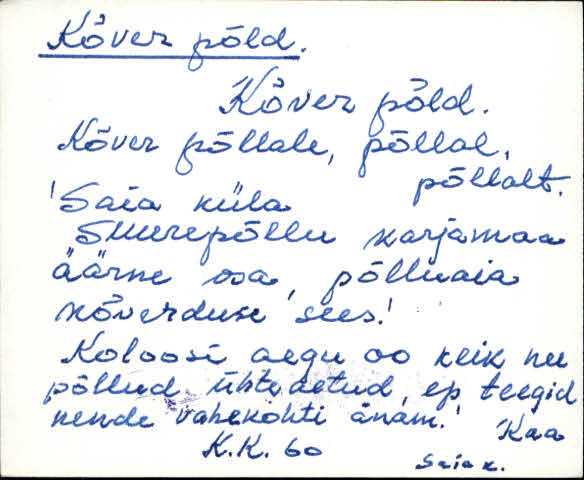 Kõver põld.
Kõver põld.
Kõver põllale, põllal,
põllalt.
'Saia küla
Suurepõllu karjamaa
äärne osa, põlluaia
kõverduse sees.'
Koloosi aegu oo keik nee
põllud ühtedetud, ep teegid
nende vahekohti änäm.' Kaa
K.K. 60
Saia k.